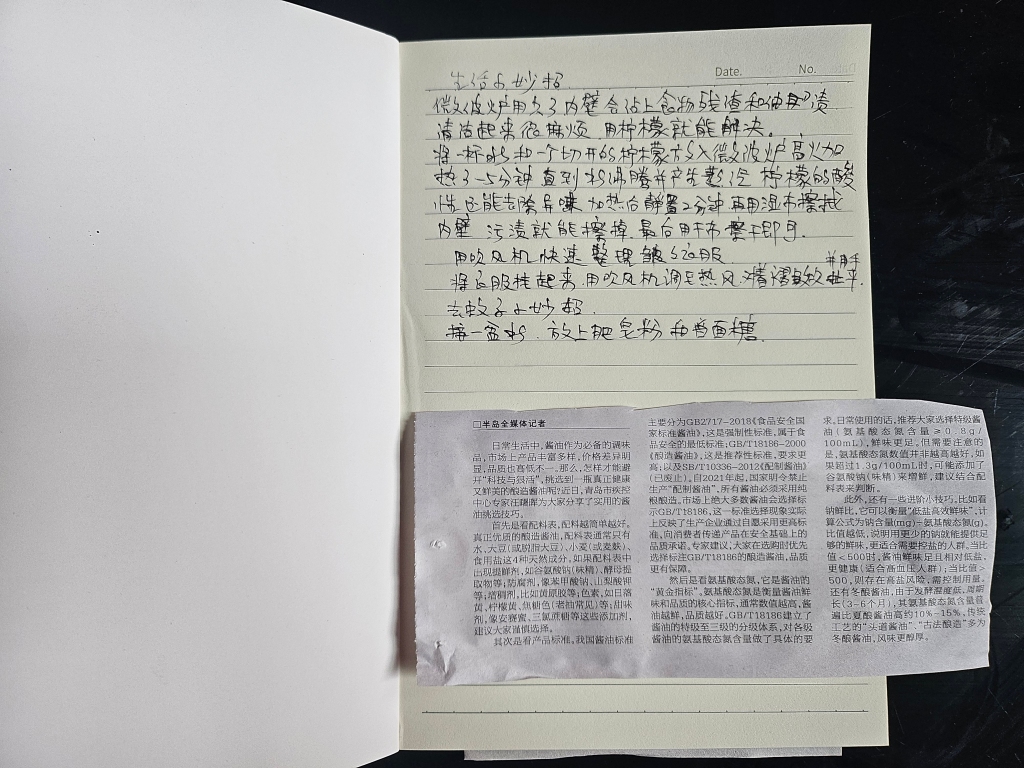 Date.
No.
生活小妙招
微波炉用久了内壁会沾上食物残渣和油渍
清洁起来很麻烦.用柠檬就能解决。
将一杯水和一个切开的柠檬放入微波炉高火加
热3-5分钟 直到水沸腾并产生蒸汽 柠檬的酸
性还能去除异味 加热后静置2分钟 再用湿布擦拭
内壁 污渍就能擦掉.最后用干布擦干即可.
用吹风机快速整理皱衣服
将衣服挂起来.用吹风机调至热风.对着褶皱吹并用手拉平.
去蚊子小妙招.
接一盆水.放上肥皂粉和白糖.
□半岛全媒体记者
日常生活中,酱油作为必备的调味
品,市场上产品丰富多样,价格差异明
显,品质也高低不一。那么,怎样才能避
开“科技与狠活”,挑选到一瓶真正健康
又鲜美的酿造酱油呢?近日,青岛市疾控
中心专家汪曙晖为大家分享了实用的酱
油挑选技巧。
首先是看配料表,配料越简单越好。
真正优质的酿造酱油,配料表通常只有
水、大豆(或脱脂大豆)、小麦(或麦麸)、
食用盐这4种天然成分。如果配料表中
出现提鲜剂,如谷氨酸钠(味精)、酵母提
取物等;防腐剂,像苯甲酸钠、山梨酸钾
等;增稠剂,比如黄原胶等;色素,如日落
黄、柠檬黄、焦糖色(老油常见)等;甜味
剂,像安赛蜜、三氯蔗糖等这些添加剂,
建议大家谨慎选择。
其次是看产品标准。我国酱油标准
主要分为GB2717-2018《食品安全国
家标准酱油》,这是强制性标准,属于食
品安全的最低标准;GB/T18186-2000
《酿造酱油》,这是推荐性标准,要求更
高;以及SB/T10336-2012《配制酱油》
(已废止)。自2021年起,国家明令禁止
生产“配制酱油”,所有酱油必须采用纯
粮酿造。市场上绝大多数酱油会选择标
示GB/T18186,这一标准选择现象实际
上反映了生产企业通过自愿采用更高标
准,向消费者传递产品在安全基础上的
品质承诺。专家建议,大家在选购时优先
选择标注GB/T18186的酿造酱油,品质
更有保障。
然后是看氨基酸态氮,它是酱油的
“黄金指标”。氨基酸态氮是衡量酱油鲜
味和品质的核心指标,通常数值越高,酱
油越鲜,品质越好。GB/T18186建立了
酱油的特级至三级的分级体系,对各级
酱油的氨基酸态氮含量做了具体的要
求。日常使用的话,推荐大家选择特级酱
油(氨基酸态氮含量≥0.8g/
100mL),鲜味更足。但需要注意的
是,氨基酸态氮数值并非越高越好,如
果超过1.3g/100mL时,可能添加了
谷氨酸钠(味精)来增鲜,建议结合配
料表来判断。
此外,还有一些进阶小技巧。比如看
钠鲜比,它可以衡量“低盐高效鲜味”,计
算公式为钠含量(mg)÷氨基酸态氮(g)。
比值越低,说明用更少的钠就能提供足
够的鲜味,更适合需要控盐的人群。当比
值<500时,酱油鲜味足且相对低盐,
更健康(适合高血压人群);当比值>
500,则存在高盐风险,需控制用量。
还有冬酿酱油,由于发酵温度低、周期
长(3-6个月),其氨基酸态氮含量普
遍比夏酿酱油高约10%-15%。传统
工艺的“头道酱油”、“古法酿造”多为
冬酿酱油,风味更醇厚。